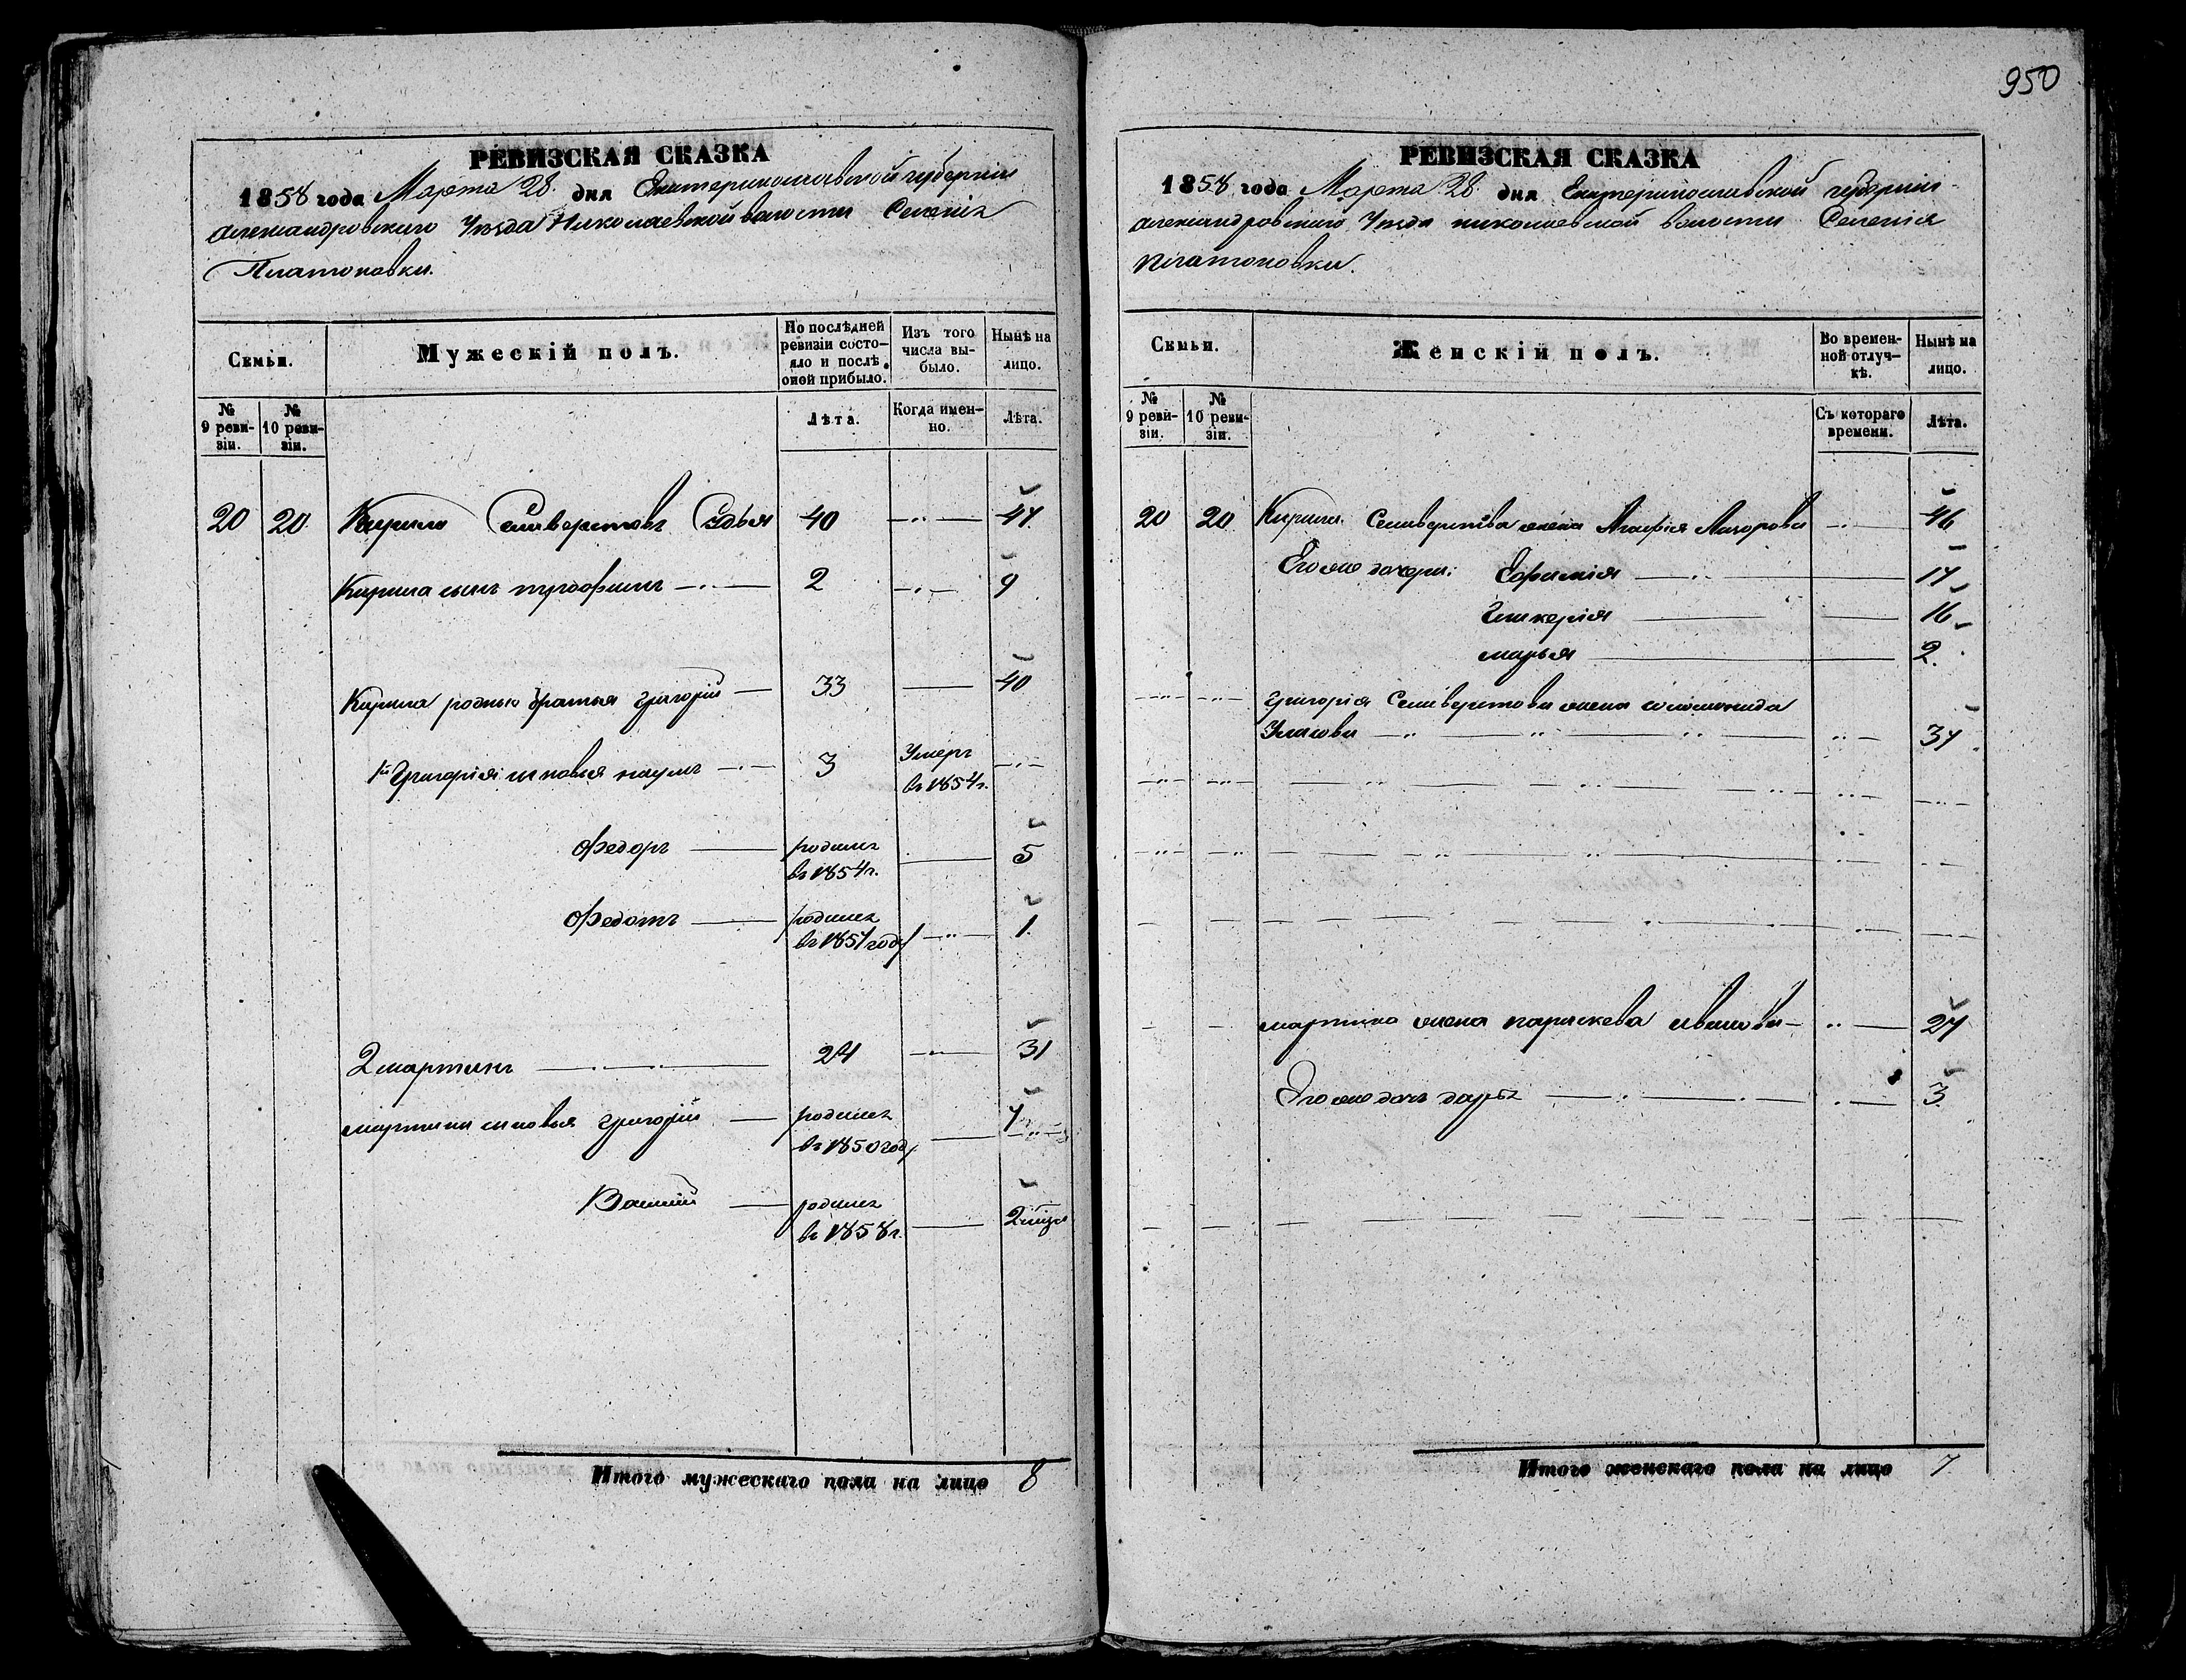 950
РЕВИЗСКАЯ СКАЗКА
1858 года Марта 28 дня Екатеринославской губернии
Александровскаго Уезда Николаевской волости Селенія
Платоновки.
Семьи.
Мужескій полъ.
По послѣдней ревизіи состояло и послѣ оной прибыло.
Изъ того числа выбыло.
Нынѣ на лицо.
№ 9 ревизіи.
№ 10 ревизіи.
Лѣта.
Когда именно.
Лѣта.
20 20 Кирила Селиверстовъ 40 47
Кирила сынъ трофимъ 2 9
Кирила родные братья григорій 33 40
1й Григорія сыновья наумъ 3 Умеръ в 1854г.
Федоръ родился в 1854г. 5
Федотъ родился в 1857 году 1
2 мартынъ 24 31
мартына сыновья григорій родился в 1850 году 7
Василій родился в 1858г. 2
Итого мужескаго пола на лицо 8
РЕВИЗСКАЯ СКАЗКА
1858 года Марта 28 дня Екатеринославской губерніи
александровскаго Уезда николаевской волости Селенія
платоновки.
Семьи.
Женскій полъ.
Во временной отлучкѣ.
Нынѣ на лицо.
№ 9 ревизіи.
№ 10 ревизіи.
Съ котораго времени.
Лѣта.
20 20 Кирила Селиверстова жена Агафія 46
Его же дочери: Ефимія 17
Гликерія 16
марья 2.
григорія Селиверстова жена соломонида
37
мартына жена параскева иванова 27
Его же дочь дарья 3
Итого женскаго пола на лицо 7